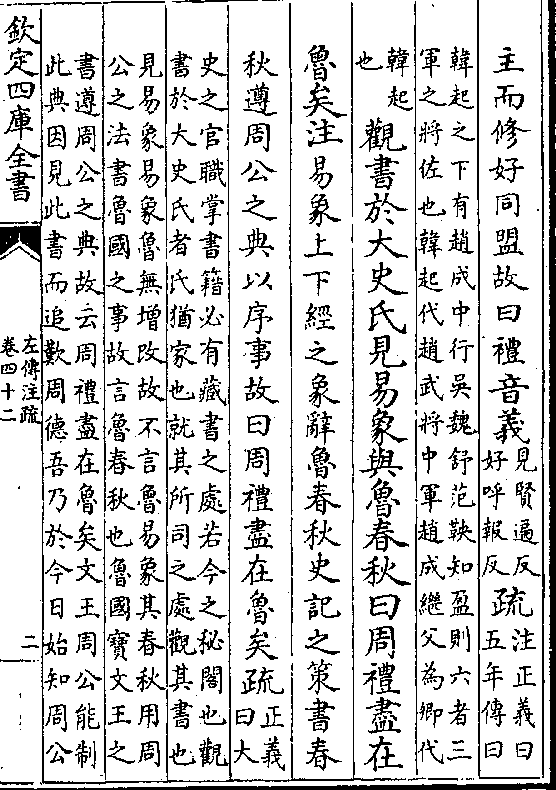 主而修好同盟故曰禮音義見賢遍反好呼報反疏注正義曰五年傳曰
韓起之下有趙成中行吳魏舒范鞅知盈則六者三
軍之將佐也韓起代趙武將中軍趙成繼父為卿代
韓起也觀書於大史氏見易象與魯春秋曰周禮盡在
魯矣注易象上下經之象辭魯春秋史記之策書春
秋遵周公之典以序事故曰周禮盡在魯矣疏正義曰大
史之官職掌書籍必有藏書之處若今之秘閣也觀
書於大史氏者氏猶家也就其所司之處觀其書也
見易象易象魯無增改故不言魯易象其春秋用周
公之法書魯國之事故言魯春秋也魯國寶文王之
書遵周公之典故云周禮盡在魯矣文王周公能制
此典因見此書而追歎周德吾乃於今日始知周公
欽定四庫全書
左傳注疏
卷四十二
二